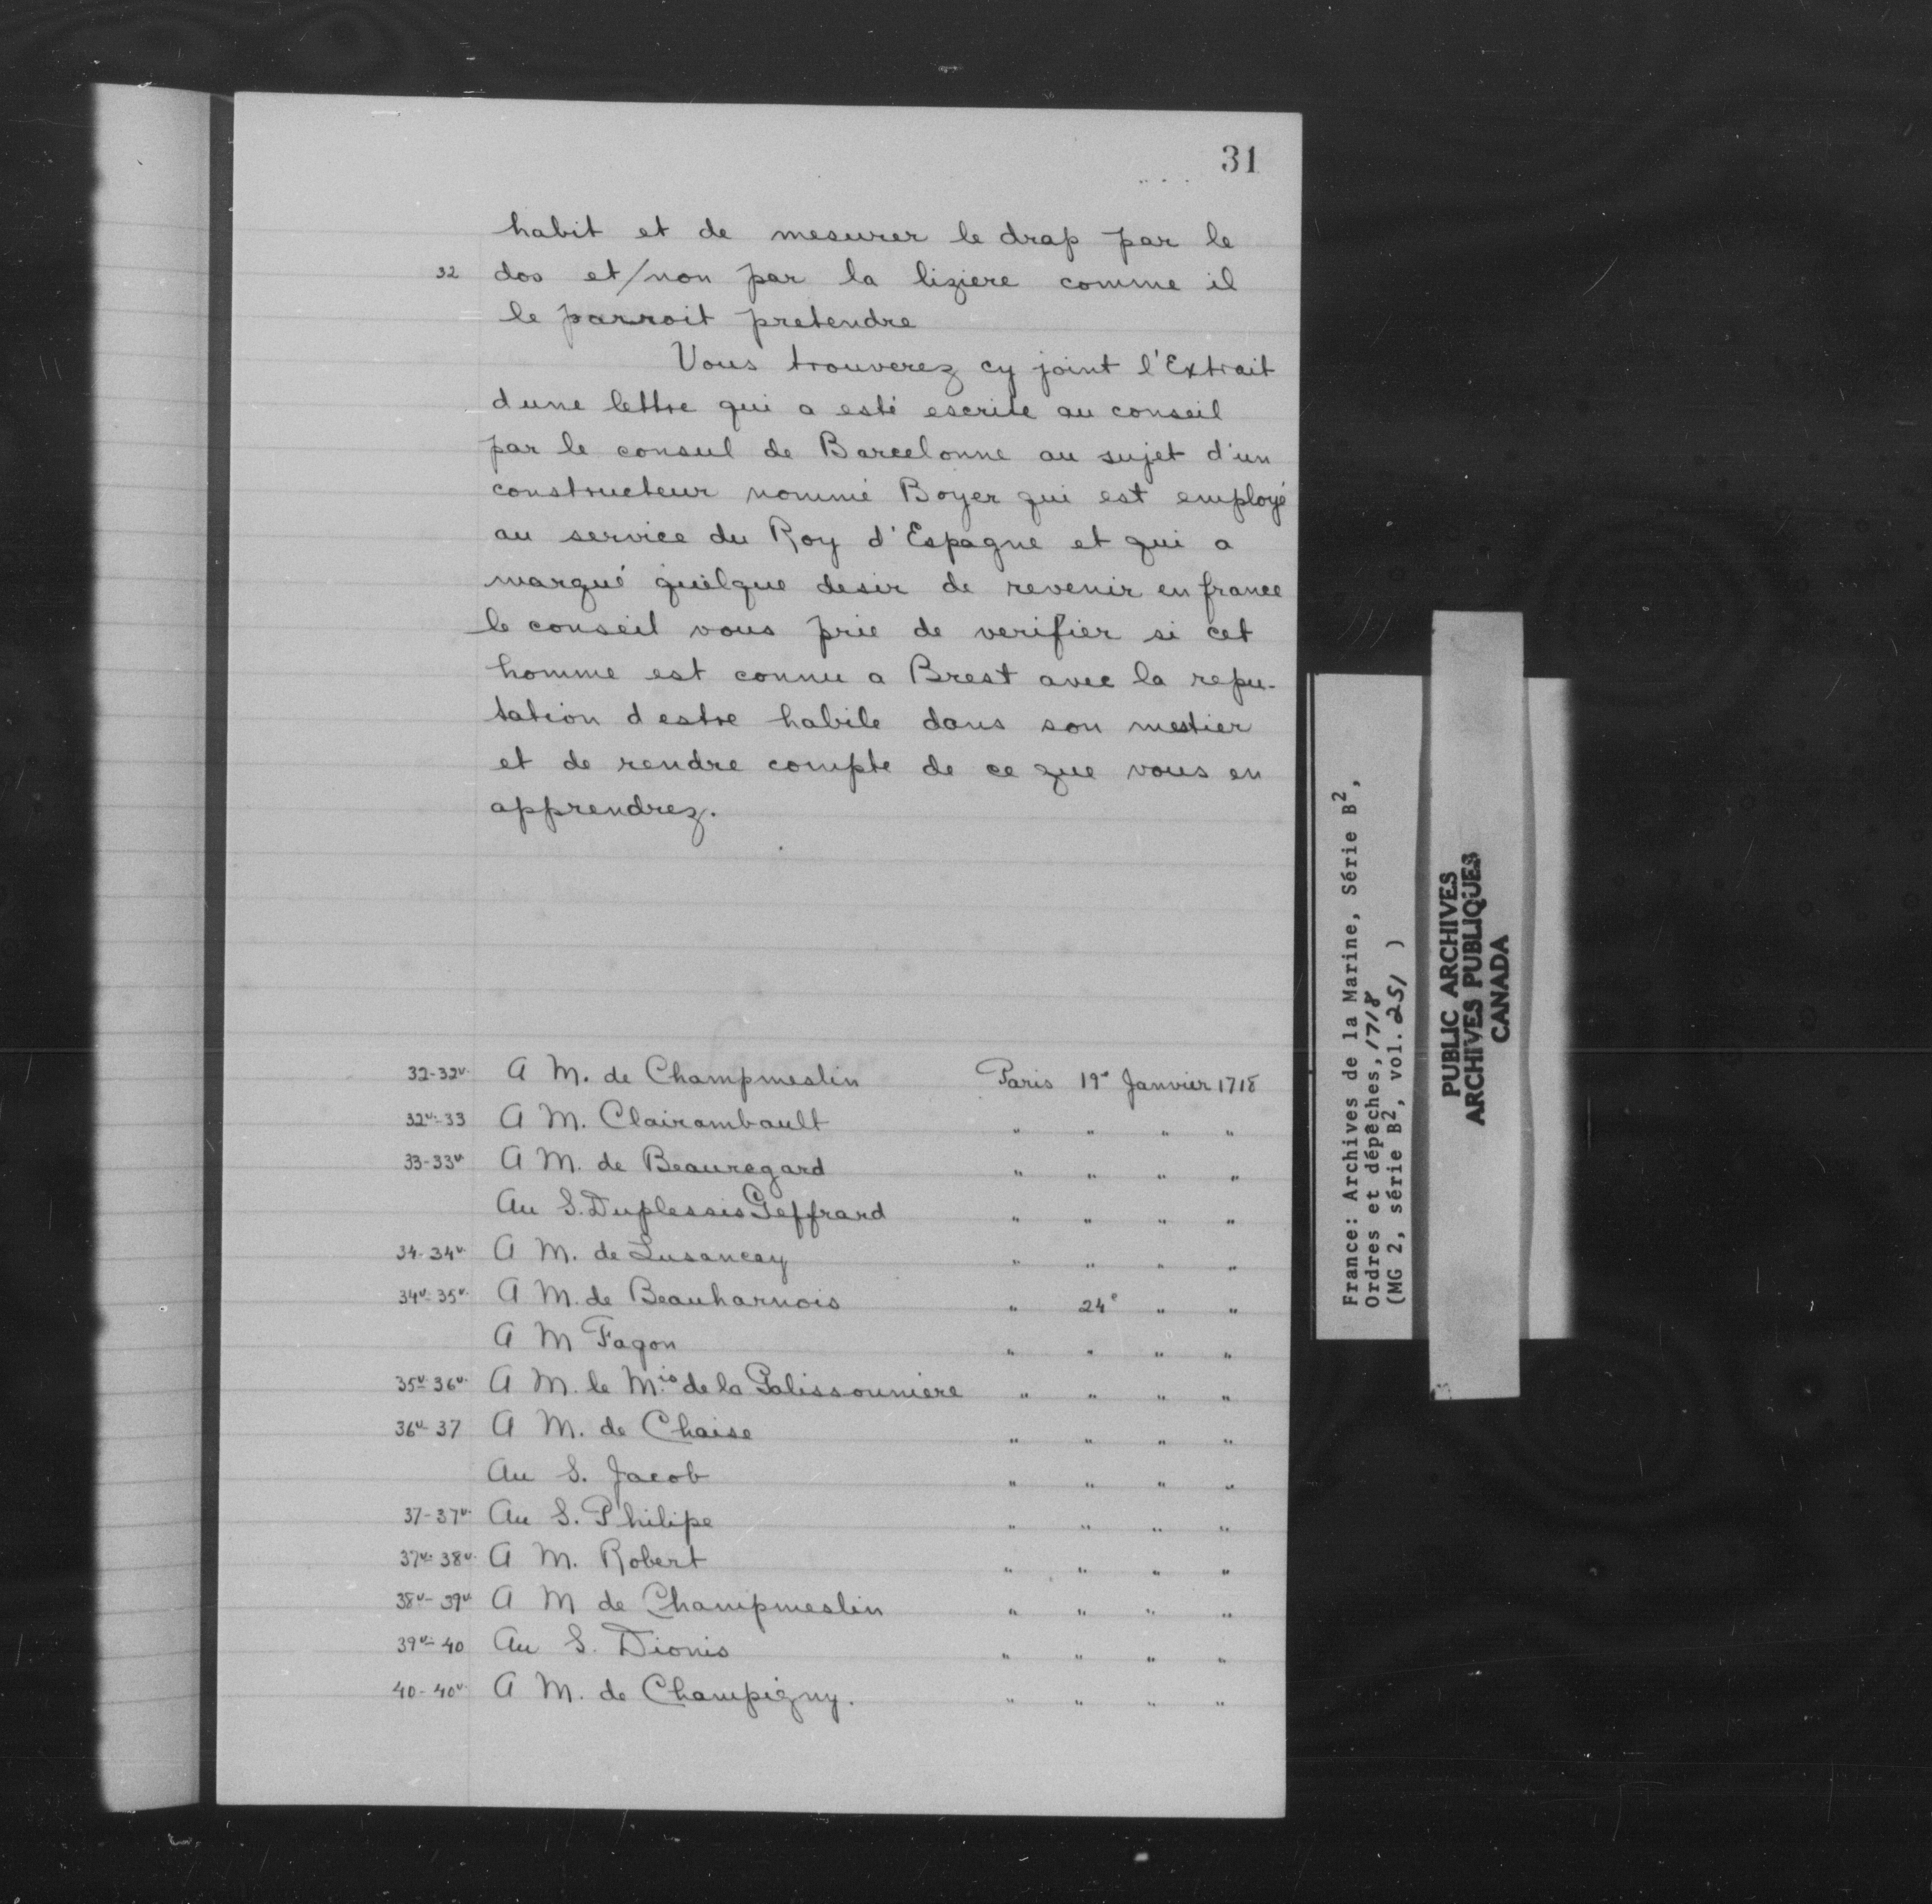 31
habit et de mesurer le drap par le
32 dos et/non par la liziere comme il
le parroit pretendre
Vous trouverez cy joint l'Extrait
dune lettre qui a esté escrite au conseil
par le consul de Barcelonne au sujet d'un
constructeur nommé Boyer qui est employé
au service du Roy d'Espagne et qui a
marqué quelque desir de revenir en france
le conseil vous prie de verifier si cet
homme est connu a Brest avec la repu-
tation d estre habile dans son mestier
et de rendre compte de ce que vous en
apprendrez.
32-32v. A M. de Champmeslin Paris 19e Janvier 1718
32v-33 A M. Clairambault " " " "
33-33v A M. de Beauregard " " " "
Au S. Duplessis Geffrard " " " "
34-34v. A M. de Lusancay " " " "
34v-35v. A M. de Beauharnois " 24e " "
A M Fagon " " " "
35v-36v. A M. le Mis de la Galissounière " " " "
36v-37 A M. de Chaise " " " "
Au S. Jacob " " " "
37-37v. Au S. Philipe " " " "
37v-38v. A M. Robert " " " "
38v-39v A M de Champmeslin " " " "
39v-40 Au S. Dionis " " " "
40-40v. A M. de Champigny. " " " "
France: Archives de la Marine, Série B2,
Ordres et dépêches, 1718
(MG 2, série B2, vol. 251 )
PUBLIC ARCHIVES
ARCHIVES PUBLIQUES
CANADA